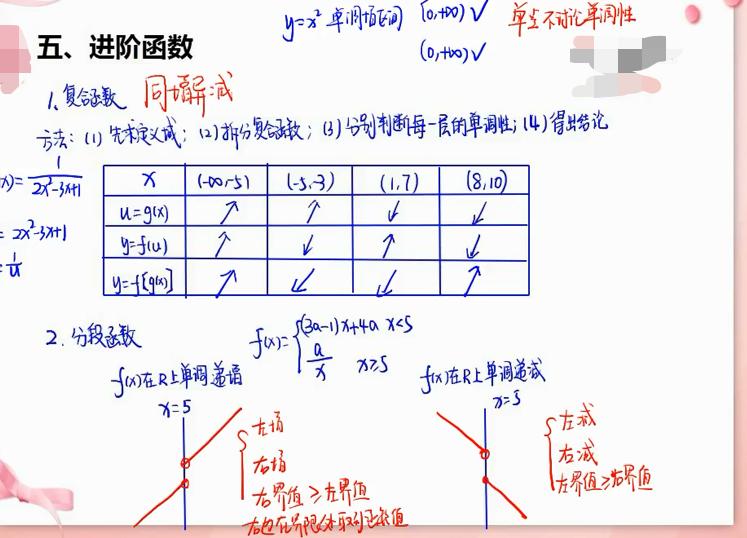 y=x² 单调增区间 [0,+∞)✓ 单点不讨论单调性
(0,+∞)✓
五、进阶函数
1、复合函数 同增异减
方法：(1) 先求定义域；(2) 拆分复合函数；(3) 分别判断每一层的单调性；(4) 得出结论
x)=1/(2x²-3x+1)
= 2x²-3x+1
=1/u
x (-∞,-5) (-5,-3) (1,7) (8,10)
u=g(x) ↗ ↗ ↙ ↙
y=f(u) ↗ ↙ ↗ ↙
y=f[g(x)] ↗ ↙ ↙ ↗
2、分段函数 f(x)={(3a-1)x+4a x<5
a/x x≥5
f(x)在R上单调递增 f(x)在R上单调递减
x=5 x=5
左增
右增
右界值≥左界值
左减
右减
左界值≥右界值